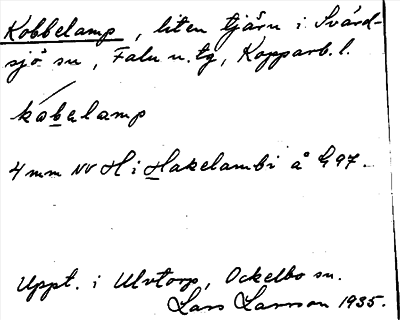 Kobbelamp, liten tjärn i Svärd-
sjö sn, Falu n. tg, Kopparb. l.
kåbalamp
4 mm NV H i Hakelambi å G 97.
Uppt. i Ulvtorp, Ockelbo sn.
Lars Larsson 1935.